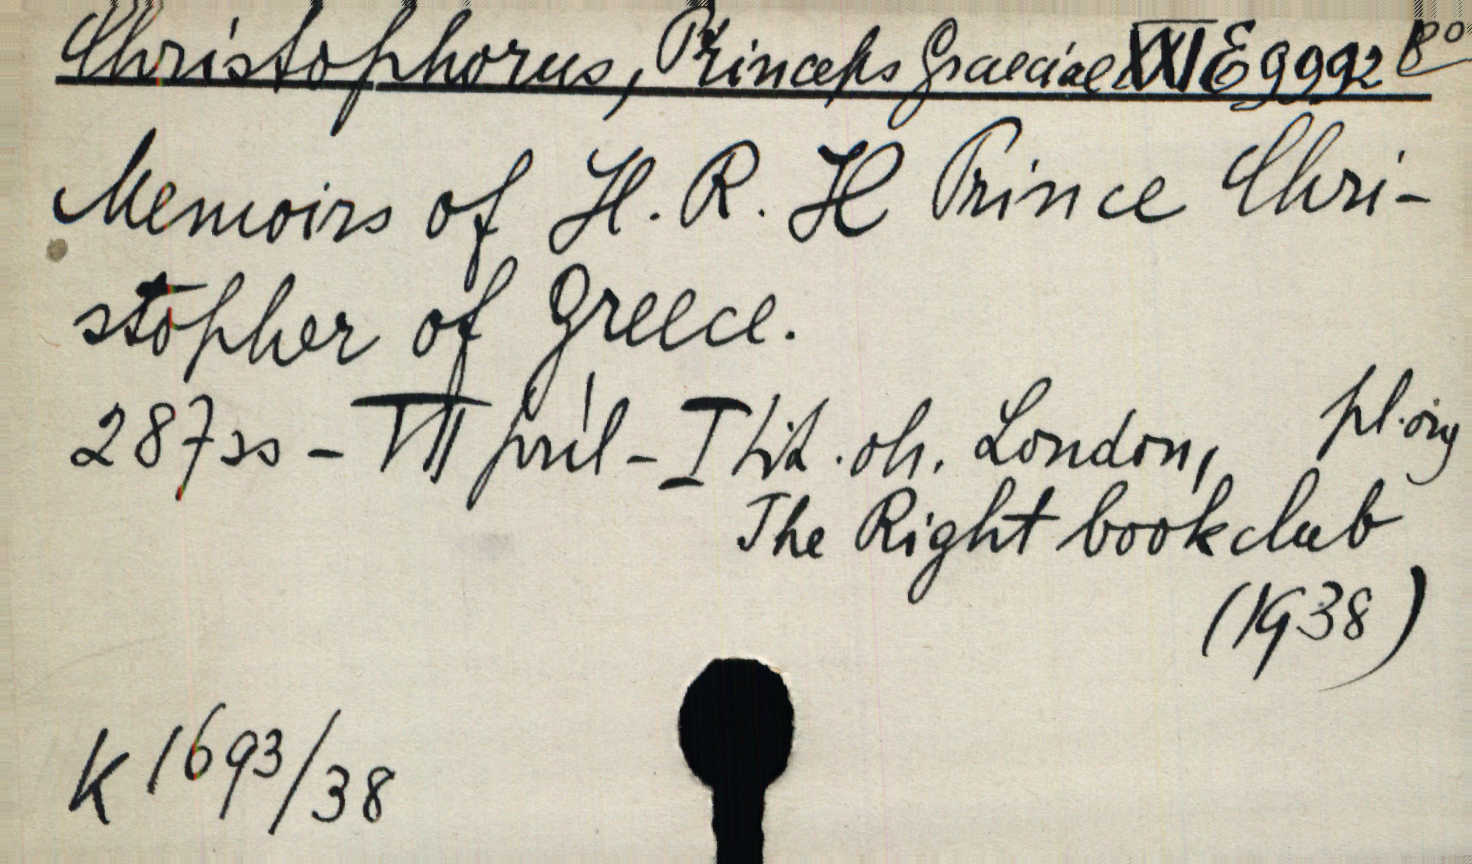 Christophorus, Princeps Graeciae XXI E 9992 8°
Memoirs of H. R. H Prince Chri-
stopher of Greece.
287 ss - VII příl - I tit. ob. London, pl. orig
The Right book club
(1938)
K 1693/38